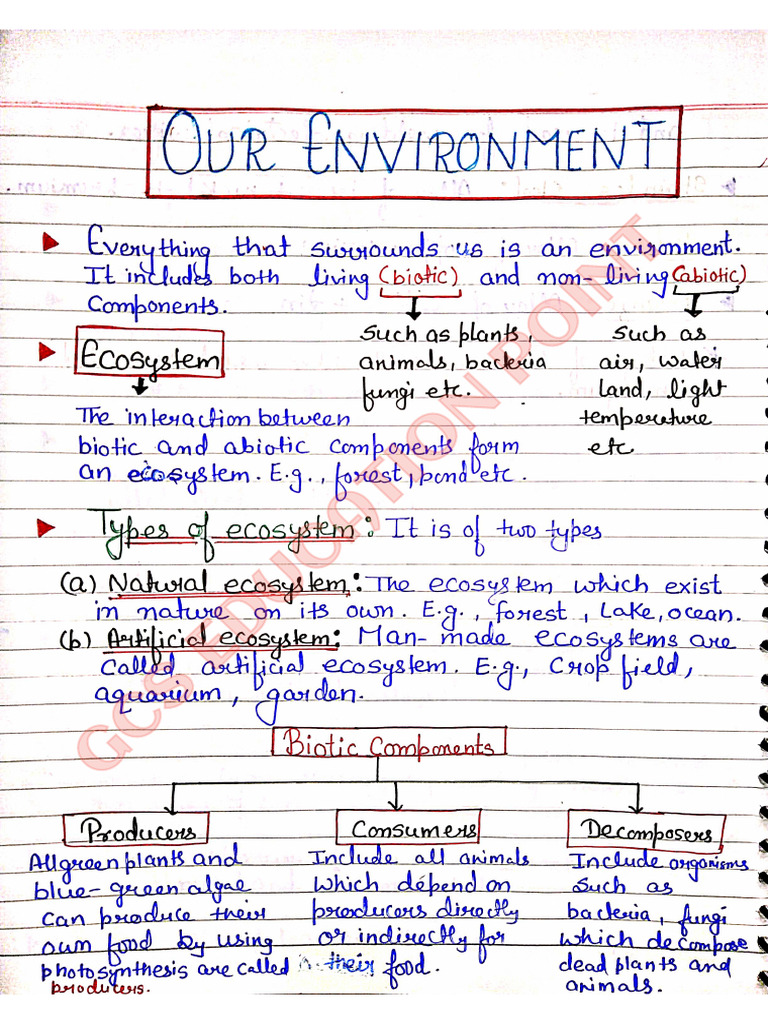 OUR ENVIRONMENT
Everything that surrounds us is an environment.
It includes both living (biotic) and non-living (abiotic)
Components.
Such as plants,
animals, bacteria
fungi etc.
Such as
air, water
land, light
temperature
etc
Ecosystem
The interaction between
biotic and abiotic components form
an ecosystem. E.g., forest, pond etc.
Types of ecosystem: It is of two types
(a) Natural ecosystem: The ecosystem which exist
in nature on its own. E.g., forest, Lake, ocean.
(b) Artificial ecosystem: Man-made ecosystems are
called artificial ecosystem. E.g., Crop field,
aquarium, garden.
Biotic Components
Producers
All green plants and
blue-green algae
can produce their
own food by using
photosynthesis are called
producers.
Consumers
Include all animals
which depend on
producers directly
or indirectly for
their food.
Decomposers
Include organisms
such as
bacteria, fungi
which decompose
dead plants and
animals.
GCS EDUCATION POINT